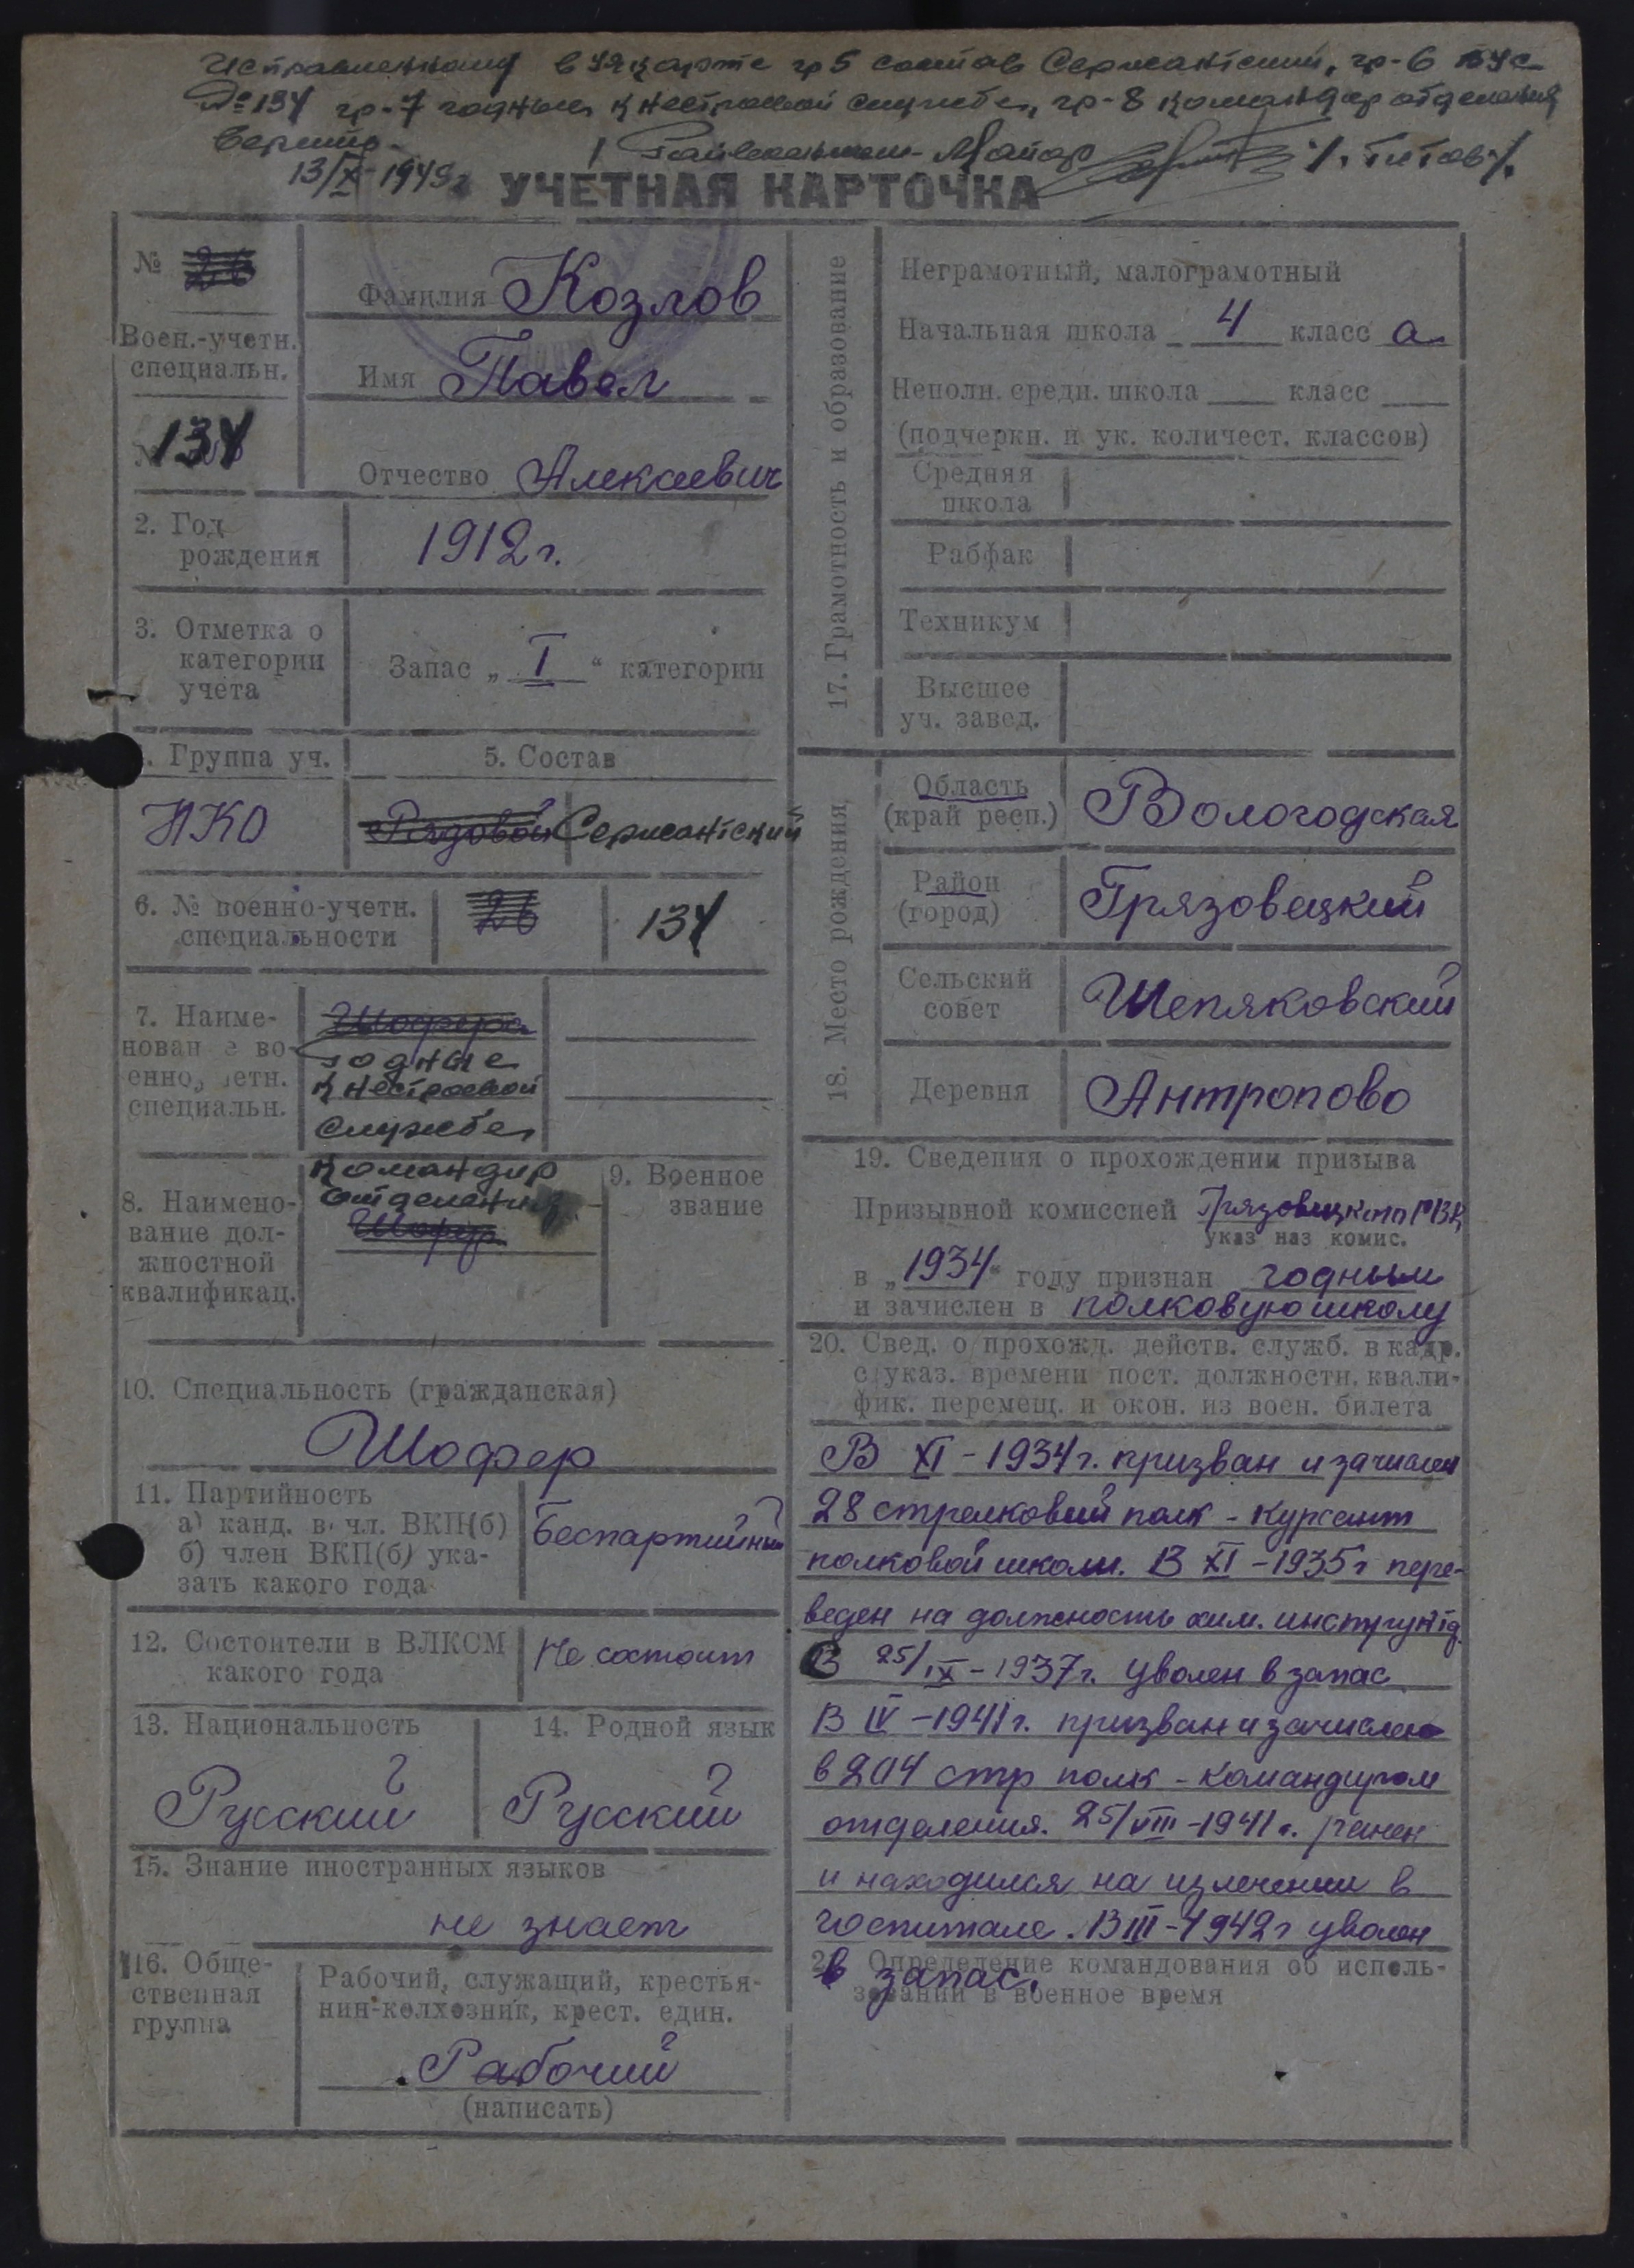 Исправленному в уч. карте гр 5 состав Сержантский, гр-6 ВУС
№ 134 гр-7 годные к нестроевой службе, гр-8 командир отделения
Верить
Райвоенком - Майор /. Титов /.
13/X-1949г
УЧЕТНАЯ КАРТОЧКА
№ 26
Воен.-учетн.
специальн.
134
Фамилия Козлов
Имя Павел
Отчество Алексеевич
2. Год
рождения
1912 г.
3. Отметка о
категории
учета
Запас „ I “ категории
Группа уч.
НКО
5. Состав
Рядовой Сержантский
6. № военно-учетн.
специальности
26
134
7. Наиме-
нован е во-
енно, етн.
специальн.
Шофера
годные
к нестроевой
службе
8. Наимено-
вание дол-
жностной
квалификац.
командир
отделения
Шофер
9. Военное
звание
10. Специальность (гражданская)
Шофер
11. Партийность
а) канд. в чл. ВКП(б)
б) член ВКП(б) ука-
зать какого года
Беспартийный
12. Состоители в ВЛКСМ
какого года
Не состоит
13. Национальность
Русский
14. Родной язык
Русский
15. Знание иностранных языков
не знает
16. Обще-
ственная
группа
Рабочий, служащий, крестья-
нин-колхозник, крест. един.
Рабочий
(написать)
17. Грамотность и образование
Неграмотный, малограмотный
Начальная школа 4 класс а
Неполн. средн. школа класс
(подчеркн. и ук. количест. классов)
Средняя
школа
Рабфак
Техникум
Высшее
уч. завед.
18. Место рождения
Область
(край респ.)
Вологодская
Район
(город)
Грязовецкий
Сельский
совет
Шепяковский
Деревня
Антропово
19. Сведения о прохождении призыва
Призывной комиссией Грязовецкого РВК
указ наз комис.
в „1934“ году признан годным
и зачислен в полковую школу
20. Свед. о прохожд. действ. служб. в кадр.
с указ. времени пост. должности, квали-
фик. перемещ. и окон. из воен. билета
В XI - 1934 г. призван и зачислен
28 стрелковый полк - курсант
полковой школы. В XI - 1935 г пере-
веден на должность хим. инструкт
В 25/IX - 1937 г. уволен в запас
В IV - 1941 г. призван и зачислен
в 204 стр полк - командиром
отделения. 25/VIII - 1941 г. ранен
и находился на излечении в
госпитале. В III - 1942 г уволен
в запас.
2 Определение командования об исполь-
зовании в военное время